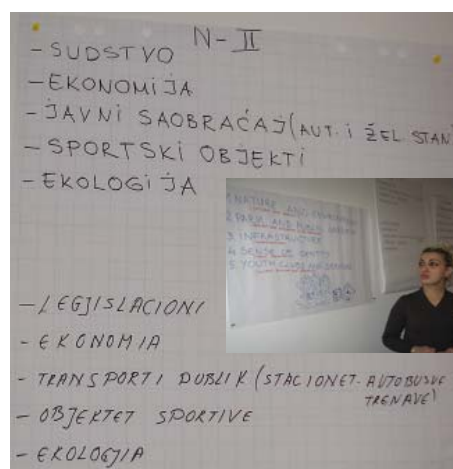 N-II
-SUDSTVO
-EKONOMIJA
-JAVNI SAOBRAĆAJ (AUT. i ŽEL STAN
-SPORTSKI OBJEKTI
-EKOLOGIJA
1. NATURE AND
2. PARK AND PUBLIC
3. INFRASTRUCTURE
4. SENSE OF
5. YOUTH
-LEGJISLACIONI
-EKONOMIA
-TRANSPORTI PUBLIK (STACIONET-AUTOBUSVE
TRENAVE)
-OBJEKTET SPORTIVE
-EKOLOGJIA